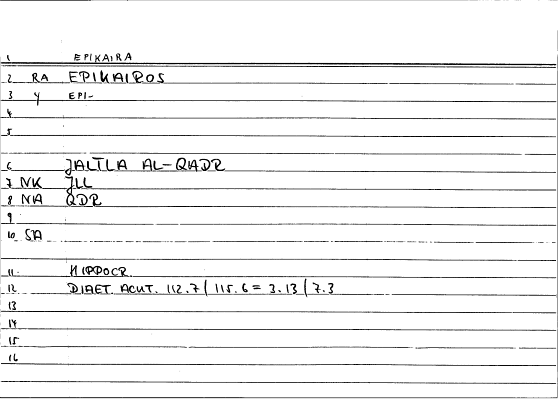 1 EPIKAIRA
2 RA EPIKAIROS
3 Y EPI-
4
5
6 JALTLA AL-QADR
7 NK JLL
8 NA QDR
9
10 SA
11 HIPPOCR.
12 DIAET. ACUT. 112.7 / 115.6 = 3.13 / 7.3
13
14
15
16